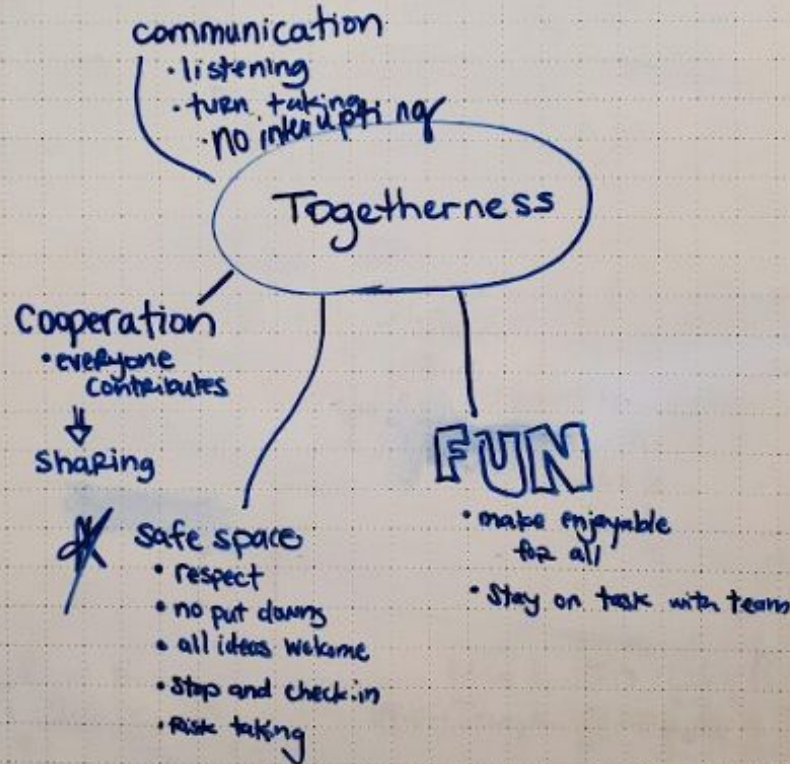 communication
• listening
• turn taking
• no interupting
Togetherness
Cooperation
• everyone
contributes
Sharing
safe space
• respect
• no put downs
• all ideas welcome
• Stop and check in
• Risk taking
FUN
• make enjoyable
for all
• Stay on task with team